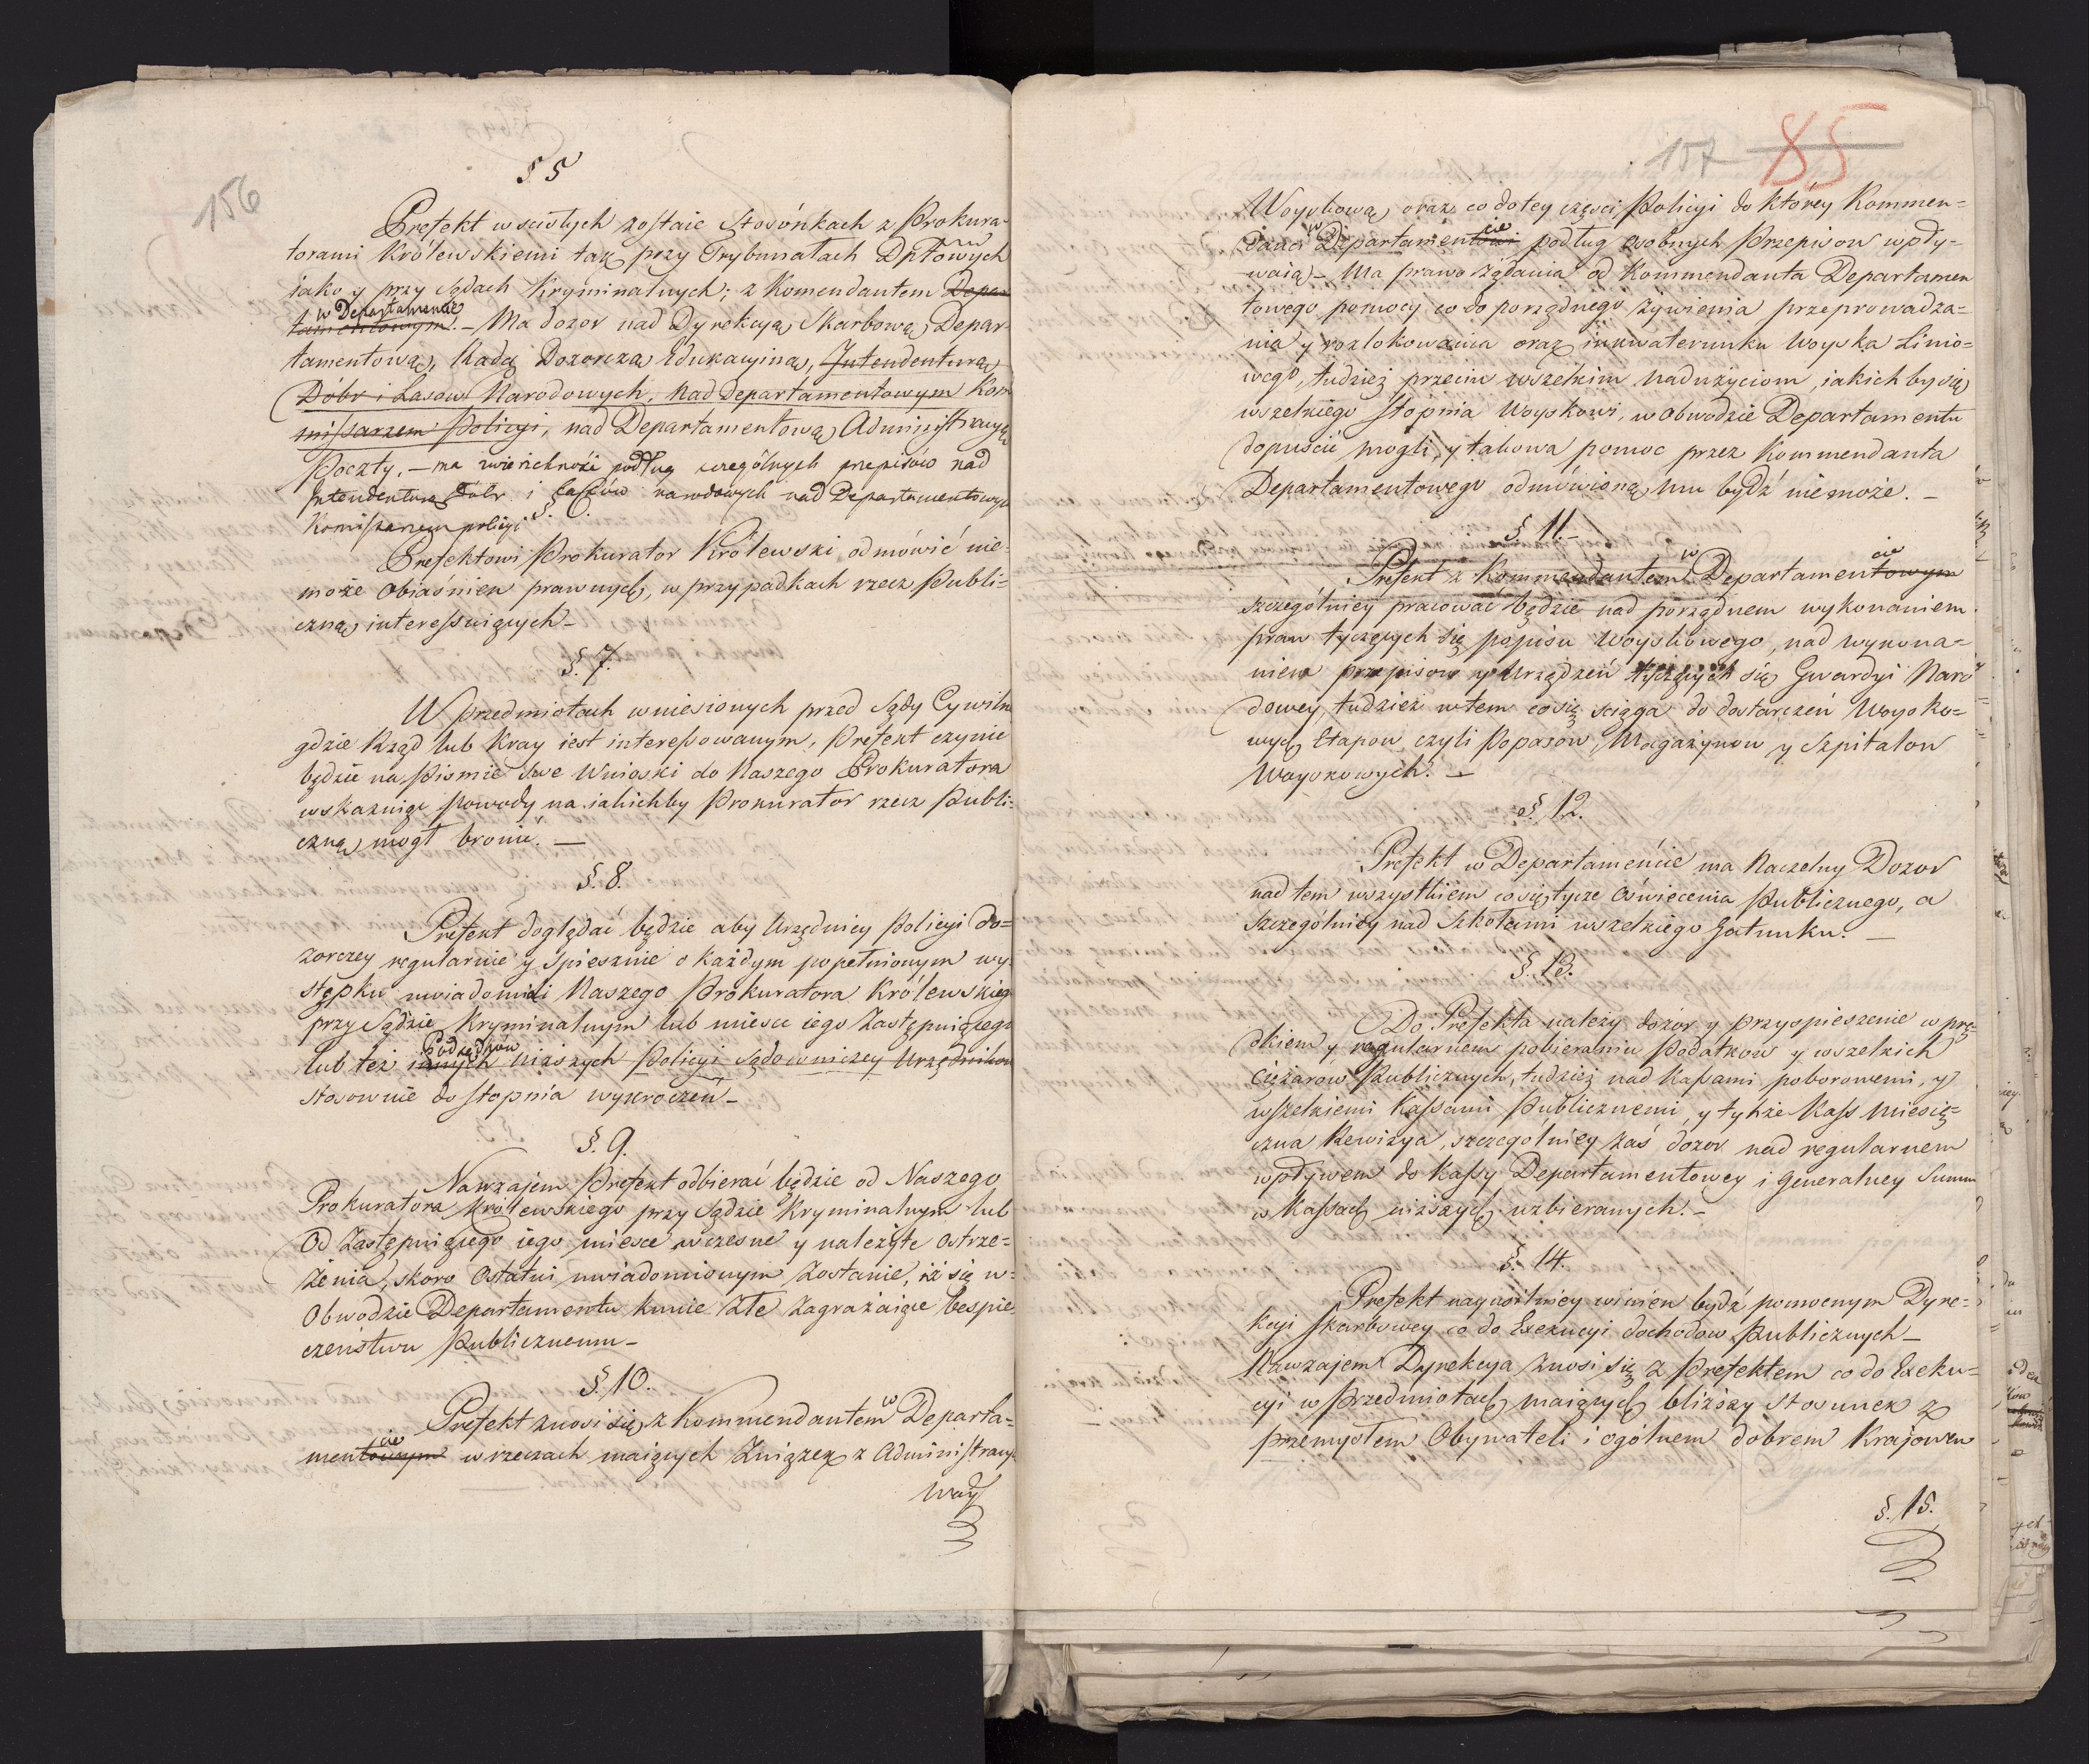 156
§ 5
Prefekt w scisłych zostaie Stosónkach z Prokura-
torami Królewskiemi tak przy Trybunałach Dptowych
iako y przy Sądach Kryminalnych; z Komendantem Depar
tamentowym w Departamencie. – Ma dozor nad Dyrekcyą Skarbową Depar-
tamentową, Radą Dozorczą Edukacyiną, Intendenturą
Dóbr i Lasow Narodowych, nad Departamentowym Kom
missarzem Policyi, nad Departamentową Administracyą
Poczty. – ma zwierzchność podług szczególnych przepisów nad
Intendenturą Dóbr i Lassów narodowych nad Departamentowym
Komissarzem policyi §.
Prefektowi Prokurator Królewski odmówić nie-
może Obiaśnien prawnych, w przypadkach rzecz Publi-
czną interessuiących –
§. 7.
W przedmiotach wniesionych przed Sądy Cywiln
gdzie Rząd lub Kray iest interessowanym, Prefekt czynić
będzie na Pismie Swe Wnioski do Naszego Prokuratora
wskazuiąc powody na iakichby Prokurator rzecz Publi-
czną mogł bronić. —
§. 8.
Prefekt doglądać będzie aby Urzędnicy Policyi Do-
zorczey regularnie y Spiesznie o każdym popełnionym wy-
stępku uwiadomili Naszego Prokuratora Królewskieg
przy Sądzie Kryminalnym lub miesce iego Zastępuiącego
lub też innych Podsędków niższych Policyi Sądowniczey Urzędnikow
stosownie do stopnia wykroczeń –
§. 9.
Nawzajem Prefekt odbierać będzie od Naszego
Prokuratora Królewskiego przy Sądzie Kryminalnym lub
Od Zastępuiącego iego miesce wczesne y należyte Ostrze-
żenia, skoro Ostatni uwiadomionym Zostanie, iż się w-
Obwodzie Departamentu knuie Złe Zagrażaiące bespie
czeństwu Publicznemu –
§. 10.
Prefekt znosi się z Kommendantem w Departa-
mentowym cie w rzeczach maiących Związek z Administracy
woy
157 85
Woyskową oraz co do tey częsci Policyi do którey Kommen-
danci w Departamentowi cie podług osobnych Przepisow wpły-
waią – Ma prawo żądania od Kommendanta Departamen
towego pomocy co do porządnego żywienia przeprowadza-
nia y rozlokowania oraz inkwaterunku Woyska Linio-
wego, tudzież przeciw wszelkim nadużyciom, iakich by się
wszelkiego stopnia Woyskowi, w Obwodzie Departamentu
dopuścić mogli, y takowa pomoc przez Kommendanta
Departamentowego odmówioną mu bydź nie może. –
§. 11. –
Prefekt z Kommendantem w Departamentowym cie
szczególniey pracować będzie nad porządnem wykonaniem
praw tyczących się popisu Woyskowego, nad wykona-
niem przepisow y Urządzeń tyczących się Gwardyi Naro
dowey, tudzież w tem co się sciąga do dostarczeń Woysko-
wych Etapow czyli Popasow, Magazynow y Szpitalow
Woyskowych. –
§. 12.
Prefekt w Departamencie ma Naczelny Dozor
nad tem wszystkiem co się tycze Oswiecenia Publicznego, a
szczególniey nad Szkołami wszelkiego Gatunku. —
§. 13.
Do Prefekta należy dozór y przyspieszenie w prę-
dkiem y regularnem pobieraniu Podatkow y wszelkich
Ciężarow Publicznych, tudzież nad Kassami poborowemi, y
wszelkiemi Kassami Publicznemi, y tychże Kass Miesię-
czna Rewizya, szczególniey zaś dozor nad regularnem
wpływem do Kassy Departamentowey i Generalney Summ
w Kassach niższych uzbieranych. –
§. 14.
Prefekt nayusilniey winien bydź pomocnym Dyre-
kcyi Skarbowey co do Exekucyi dochodow Publicznych –
Nawzajem Dyrekcya znosi się z Prefektem co do Exeku-
cyi w Przedmiotach maiących bliższy Stosunek z
przemysłem Obywateli i ogólnem dobrem Krajowem
§. 15.